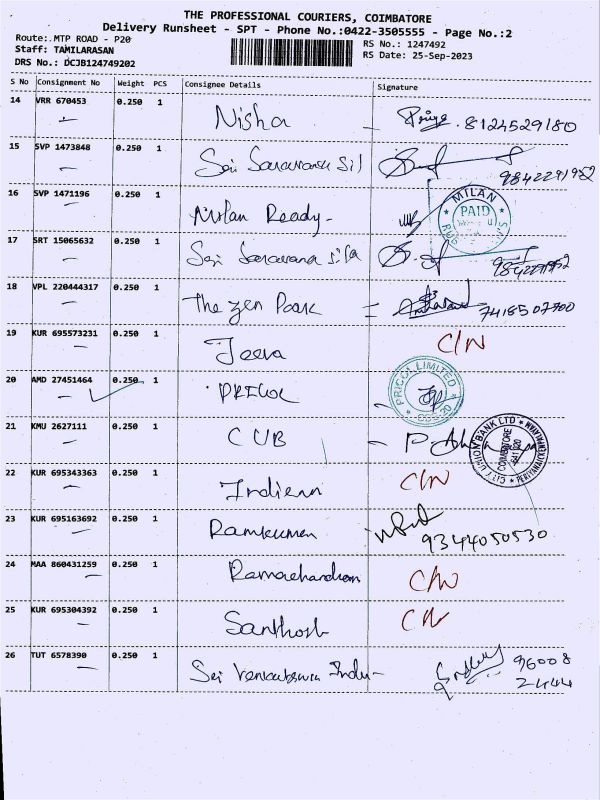 THE PROFESSIONAL COURIERS, COIMBATORE
Delivery Runsheet - SPT - Phone No.:0422-3505555 - Page No.:2
Route: MTP ROAD - P20
RS No.: 1247492
Staff: TAMILARASAN
RS Date: 25-Sep-2023
DRS No.: DCJB124749202
S No Consignment No Weight PCS Consignee Details Signature
14 VRR 670453 0.250 1 Nisha - Priya 8124529180
15 SVP 1473848 0.250 1 Sai Saravana Sil 9842291952
16 SVP 1471196 0.250 1 Milan Ready- MILAN PAID
17 SRT 15065632 0.250 1 Sai Saravana Silk
18 VPL 220444317 0.250 1 The Zen Park = 7418507700
19 KUR 695573231 0.250 1 Jeeva C/N
20 AMD 27451464 0.250 1 PRICOL PRICOL LIMITED
21 KMU 2627111 0.250 1 CUB - CITY UNION BANK LTD COIMBATORE
22 KUR 695343363 0.250 1 Indian C/N
23 KUR 695163692 0.250 1 Ramkumar 9344050530
24 MAA 860431259 0.250 1 Ramachandran C/N
25 KUR 695304392 0.250 1 Santhosh C/N
26 TUT 6578390 0.250 1 Sri Venkateswara Indu- 96008
2444